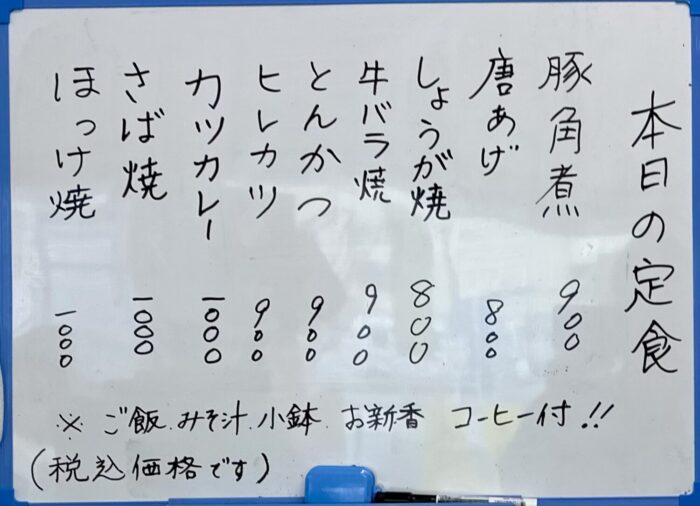 本日の定食
豚角煮 900
唐あげ 800
しょうが焼 800
牛バラ焼 900
とんかつ 900
ヒレカツ 900
カツカレー 1000
さば焼 1000
ほっけ焼 1000
※ ご飯.みそ汁.小鉢.お新香 コーヒー付!!
(税込価格です)